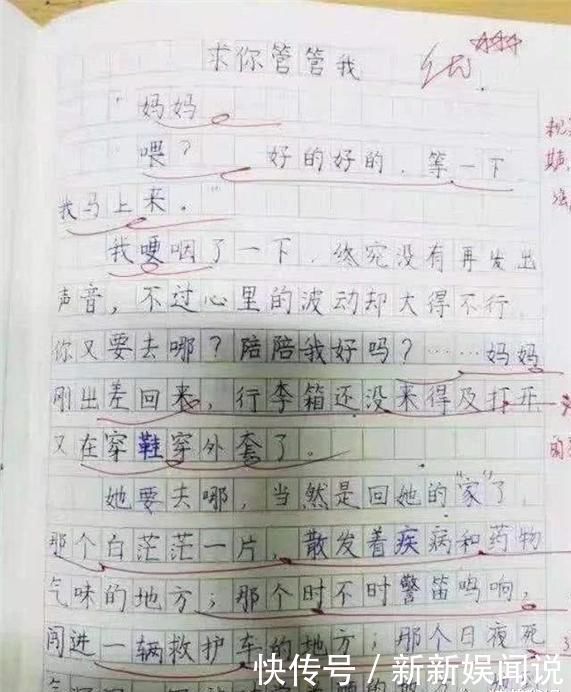 求你管管我
优
"妈妈。"
"喂？ 好的好的，等一下，
我马上来。"
我哽咽了一下，终究没有再发出
声音，不过心里的波动却大得不行。
你又要去哪？陪陪我好吗？……妈妈
刚出差回来，行李箱还没来得及打开，
又在穿鞋穿外套了。
她要去哪，当然是回她的"家"了，
那个白茫茫一片，散发着疾病和药物
气味的地方；那个时不时警笛鸣响，
闯进一辆救护车的地方；那个日夜死
快传号／新新娱闻说